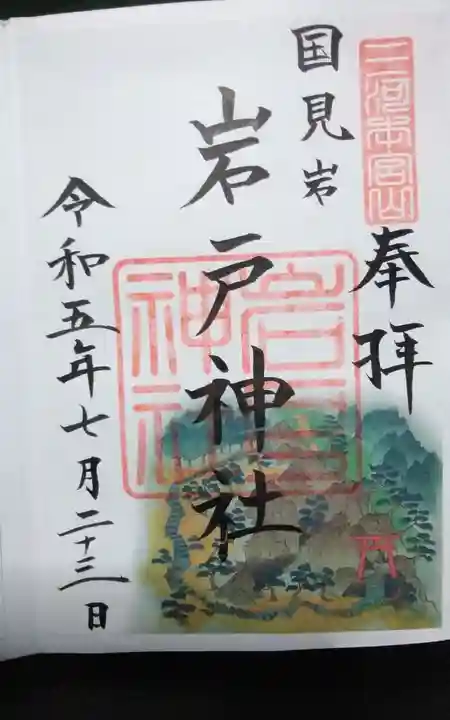 三河本宮山
奉拝
国見岩
岩戸神社
岩戸神社
令和五年七月二十三日